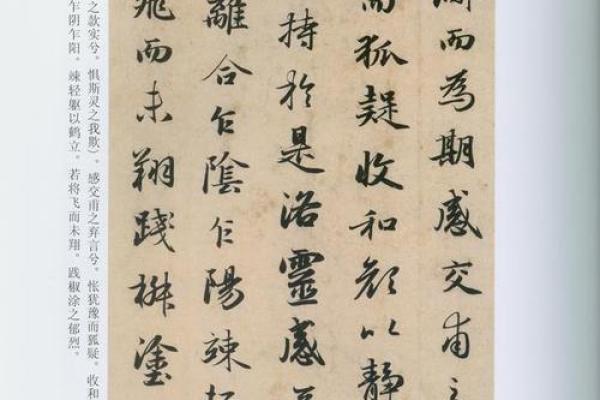 而為期感交甫之
而狐疑收和顏以靜
持於是洛靈感
離合乍陰乍陽竦
飛而未翔踐椒塗
之款实兮。惧斯灵之我欺）。感交甫之弃言兮。怅犹豫而狐疑。收和
乍阴乍阳。竦轻躯以鹤立。若将飞而未翔。践椒涂之郁烈。